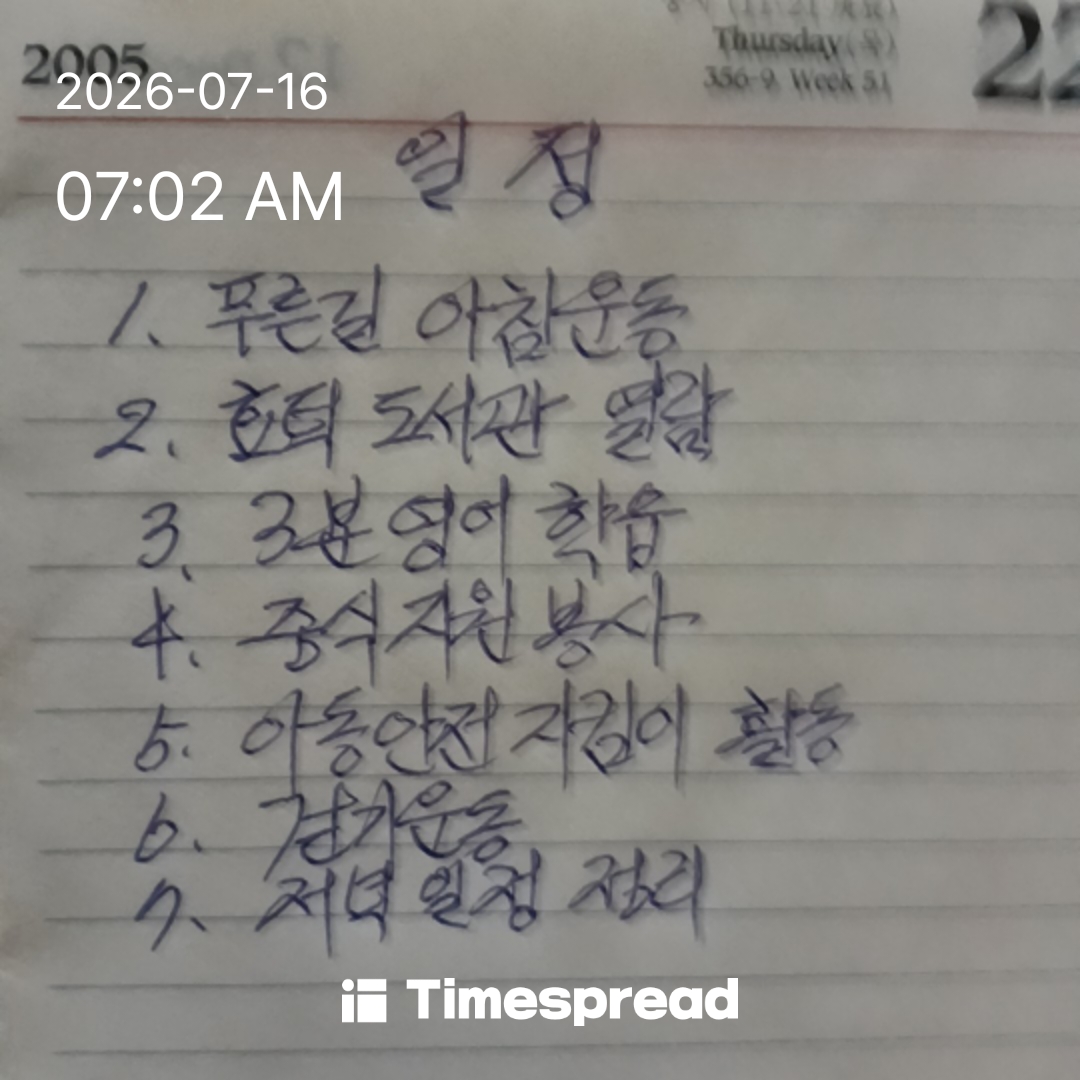 2005
Thursday(목)
356-9 Week 51
22
2026-07-16
07:02 AM
일정
1. 푸른길 아침운동
2. 효덕 도서관 열람
3. 3분 영어 학습
4. 중식자원 봉사
5. 아동안전 지킴이 활동
6. 걷기운동
7. 저녁 일정 정리
Timespread